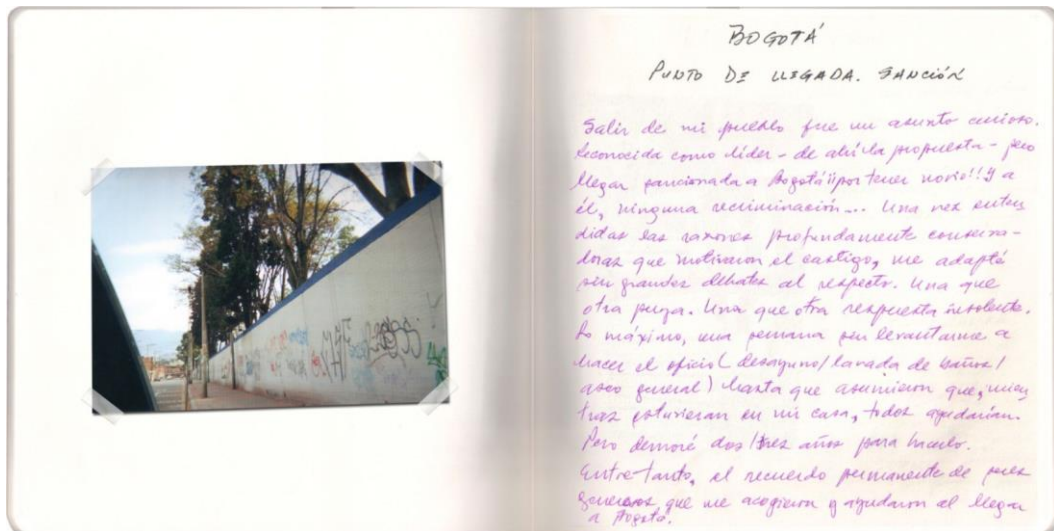 BOGOTÁ
PUNTO DE LLEGADA. SANCIÓN
Salir de mi pueblo fue un asunto curioso.
Reconocida como líder - de ahí la propuesta - pero
llegar sancionada a Bogotá ¡¡por tener novio!! Y a
él, ninguna recriminación... Una vez enten
didas las razones profundamente conserva-
doras que motivaron el castigo, me adapté
sin grandes debates al respecto. Una que
otra puya. Una que otra respuesta insolente.
Lo máximo, una semana sin levantarme a
hacer el oficio (desayuno/lavada de baños/
aseo general) hasta que asumieron que, mien
tras estuvieran en mi casa, todos ayudarían.
Pero demoré dos/tres años para hacerlo.
Entre-tanto, el recuerdo permanente de seres
generosos que me acogieron y ayudaron al llegar
a Bogotá.